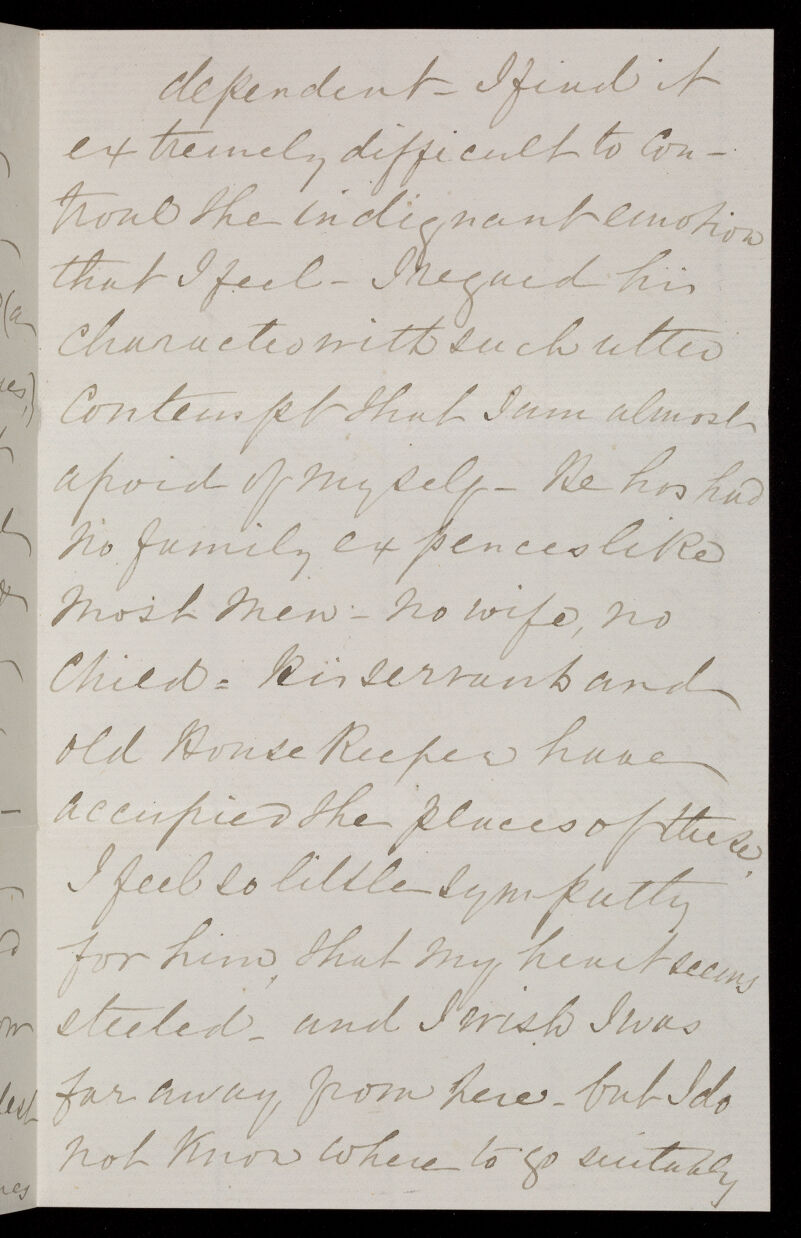 dependent - I find it
extremely difficult to con-
troul the indignant emotion
that I feel - I regard his
character with such utter
contempt that I am almost
afraid of myself - He has had
no family expences like
most men - no wife, no
child = his servants and
old House Keeper have
occupied the places of these.
I feel so little sympathy
for him, that my heart seems
steeled - and I wish I was
far away from here - but I do
not know where to go suitably